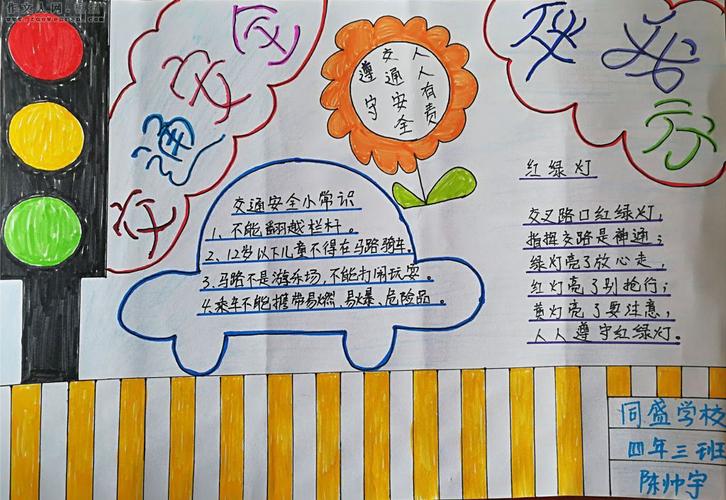 作文人网
交通安全
伴我行
遵守
交通安全
人人有责
交通安全小常识
1、不能翻越栏杆。
2、12岁以下儿童不得在马路骑车。
3.马路不是游乐场,不能打闹玩耍。
4.乘车不能携带易燃、易爆、危险品。
红绿灯
交叉路口红绿灯,
指挥交路是神通;
绿灯亮了放心走,
红灯亮了别抢行;
黄灯亮了要注意,
人人遵守红绿灯。
同盛学校
四年三班
陈帅宇